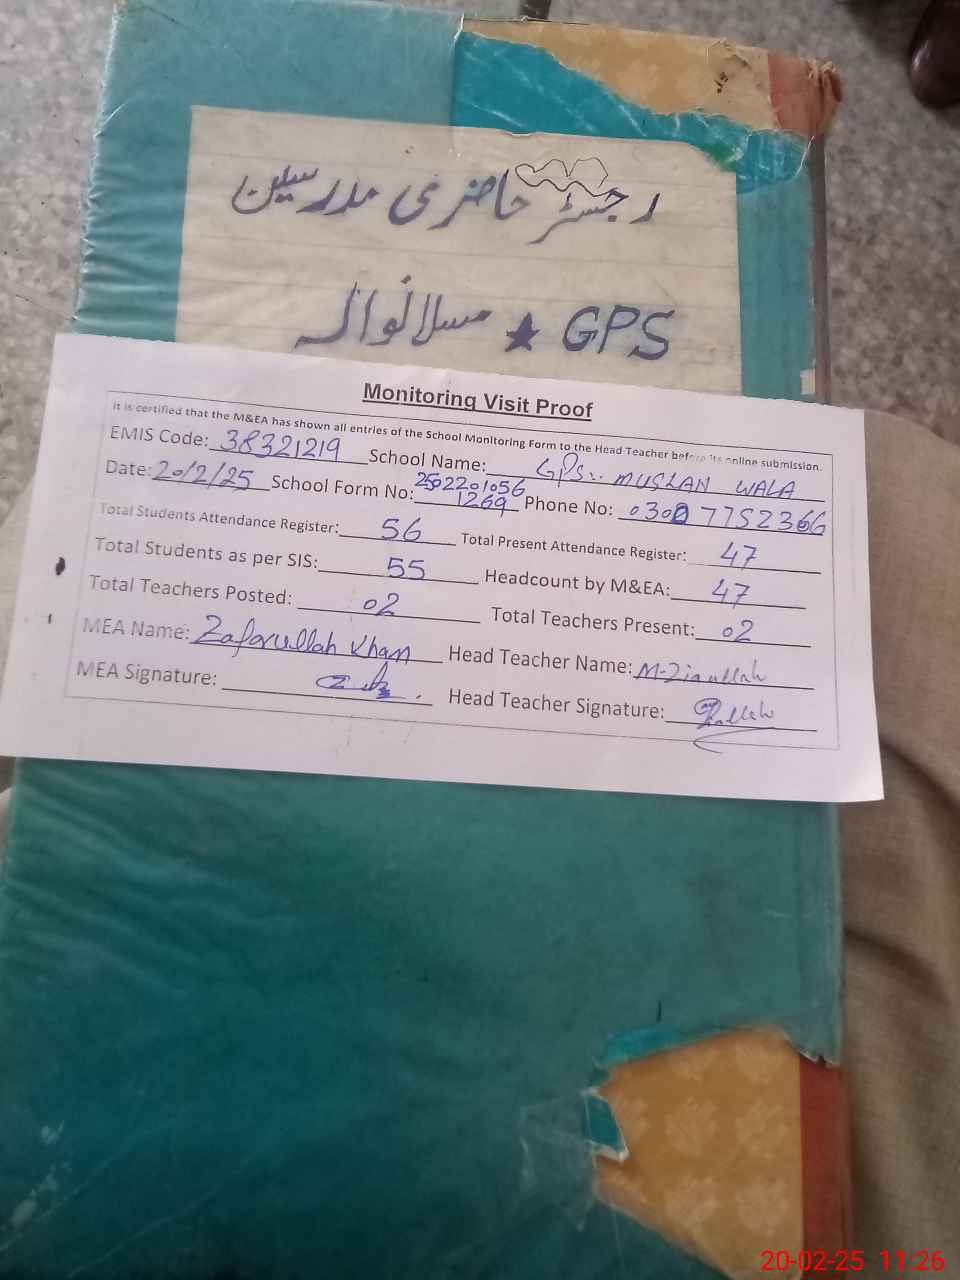 رجسٹر حاضری مدرسین
GPS ★ مسلانوالہ
Monitoring Visit Proof
It is certified that the M&EA has shown all entries of the School Monitoring Form to the Head Teacher before its online submission.
EMIS Code: 38321219 School Name: GPS:. MUSLAN WALA
Date: 20/2/25 School Form No: 2502201056 1269 Phone No: 03007752366
Total Students Attendance Register: 56 Total Present Attendance Register: 47
Total Students as per SIS: 55 Headcount by M&EA: 47
Total Teachers Posted: 02 Total Teachers Present: 02
MEA Name: Zafarullah Khan Head Teacher Name: M-Ziaullah
MEA Signature: Head Teacher Signature:
20-02-25 11:26